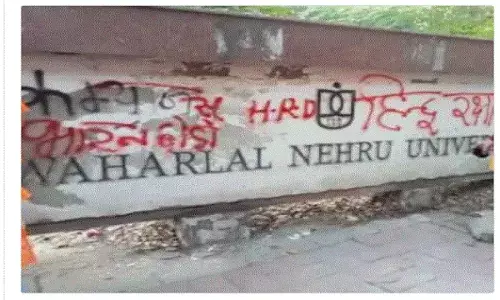 H.R.D हिन्दू रक्षा
भारत छोडो
WAHARLAL NEHRU UNIVER